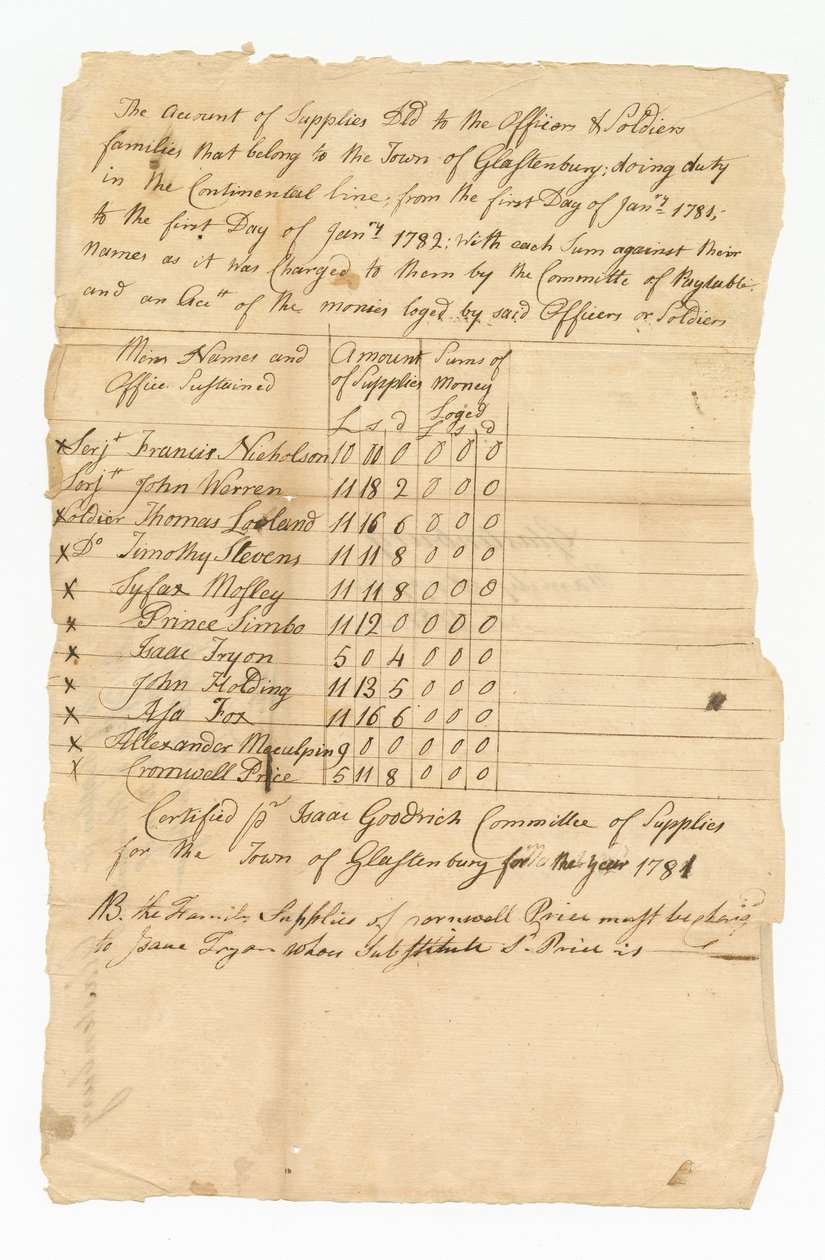 The Account of Supplies Dld to the Officers & Soldiers
families that belong to the Town of Glastenbury; doing duty
in the Continental line; from the first Day of Janry 1781;
to the first Day of Janry 1782; with each Sum against their
names as it was Charged to them by the Committe of Paytable.
and an Acctt of the monies loged by said Officers or Soldiers
Mens Names and Office Sustained | Amount of Supplies | Sums of Money Loged
£ s d £ s d
x Serjt Francis Nicholson 10 00 0 0 0 0
Serjtt John Werren 11 18 2 0 0 0
x Soldier Thomas Loveland 11 16 6 0 0 0
x Do Timothy Stevens 11 11 8 0 0 0
x Syfax Mosley 11 11 8 0 0 0
x Prince Simbo 11 12 0 0 0 0
x Isaac Tryon 5 0 4 0 0 0
x John Holding 11 13 5 0 0 0
x Asa Fox 11 16 6 0 0 0
x Allexander Meculpin 9 0 0 0 0 0
x Cromwell Price 5 11 8 0 0 0
Certified pr Isaac Goodrich Committee of Supplies
for the Town of Glastenbury for the year 1781
NB. the Family Supplies of Cornwell Price must be Charg'd
to Isaac Tryon whose Substitute Sd Price is